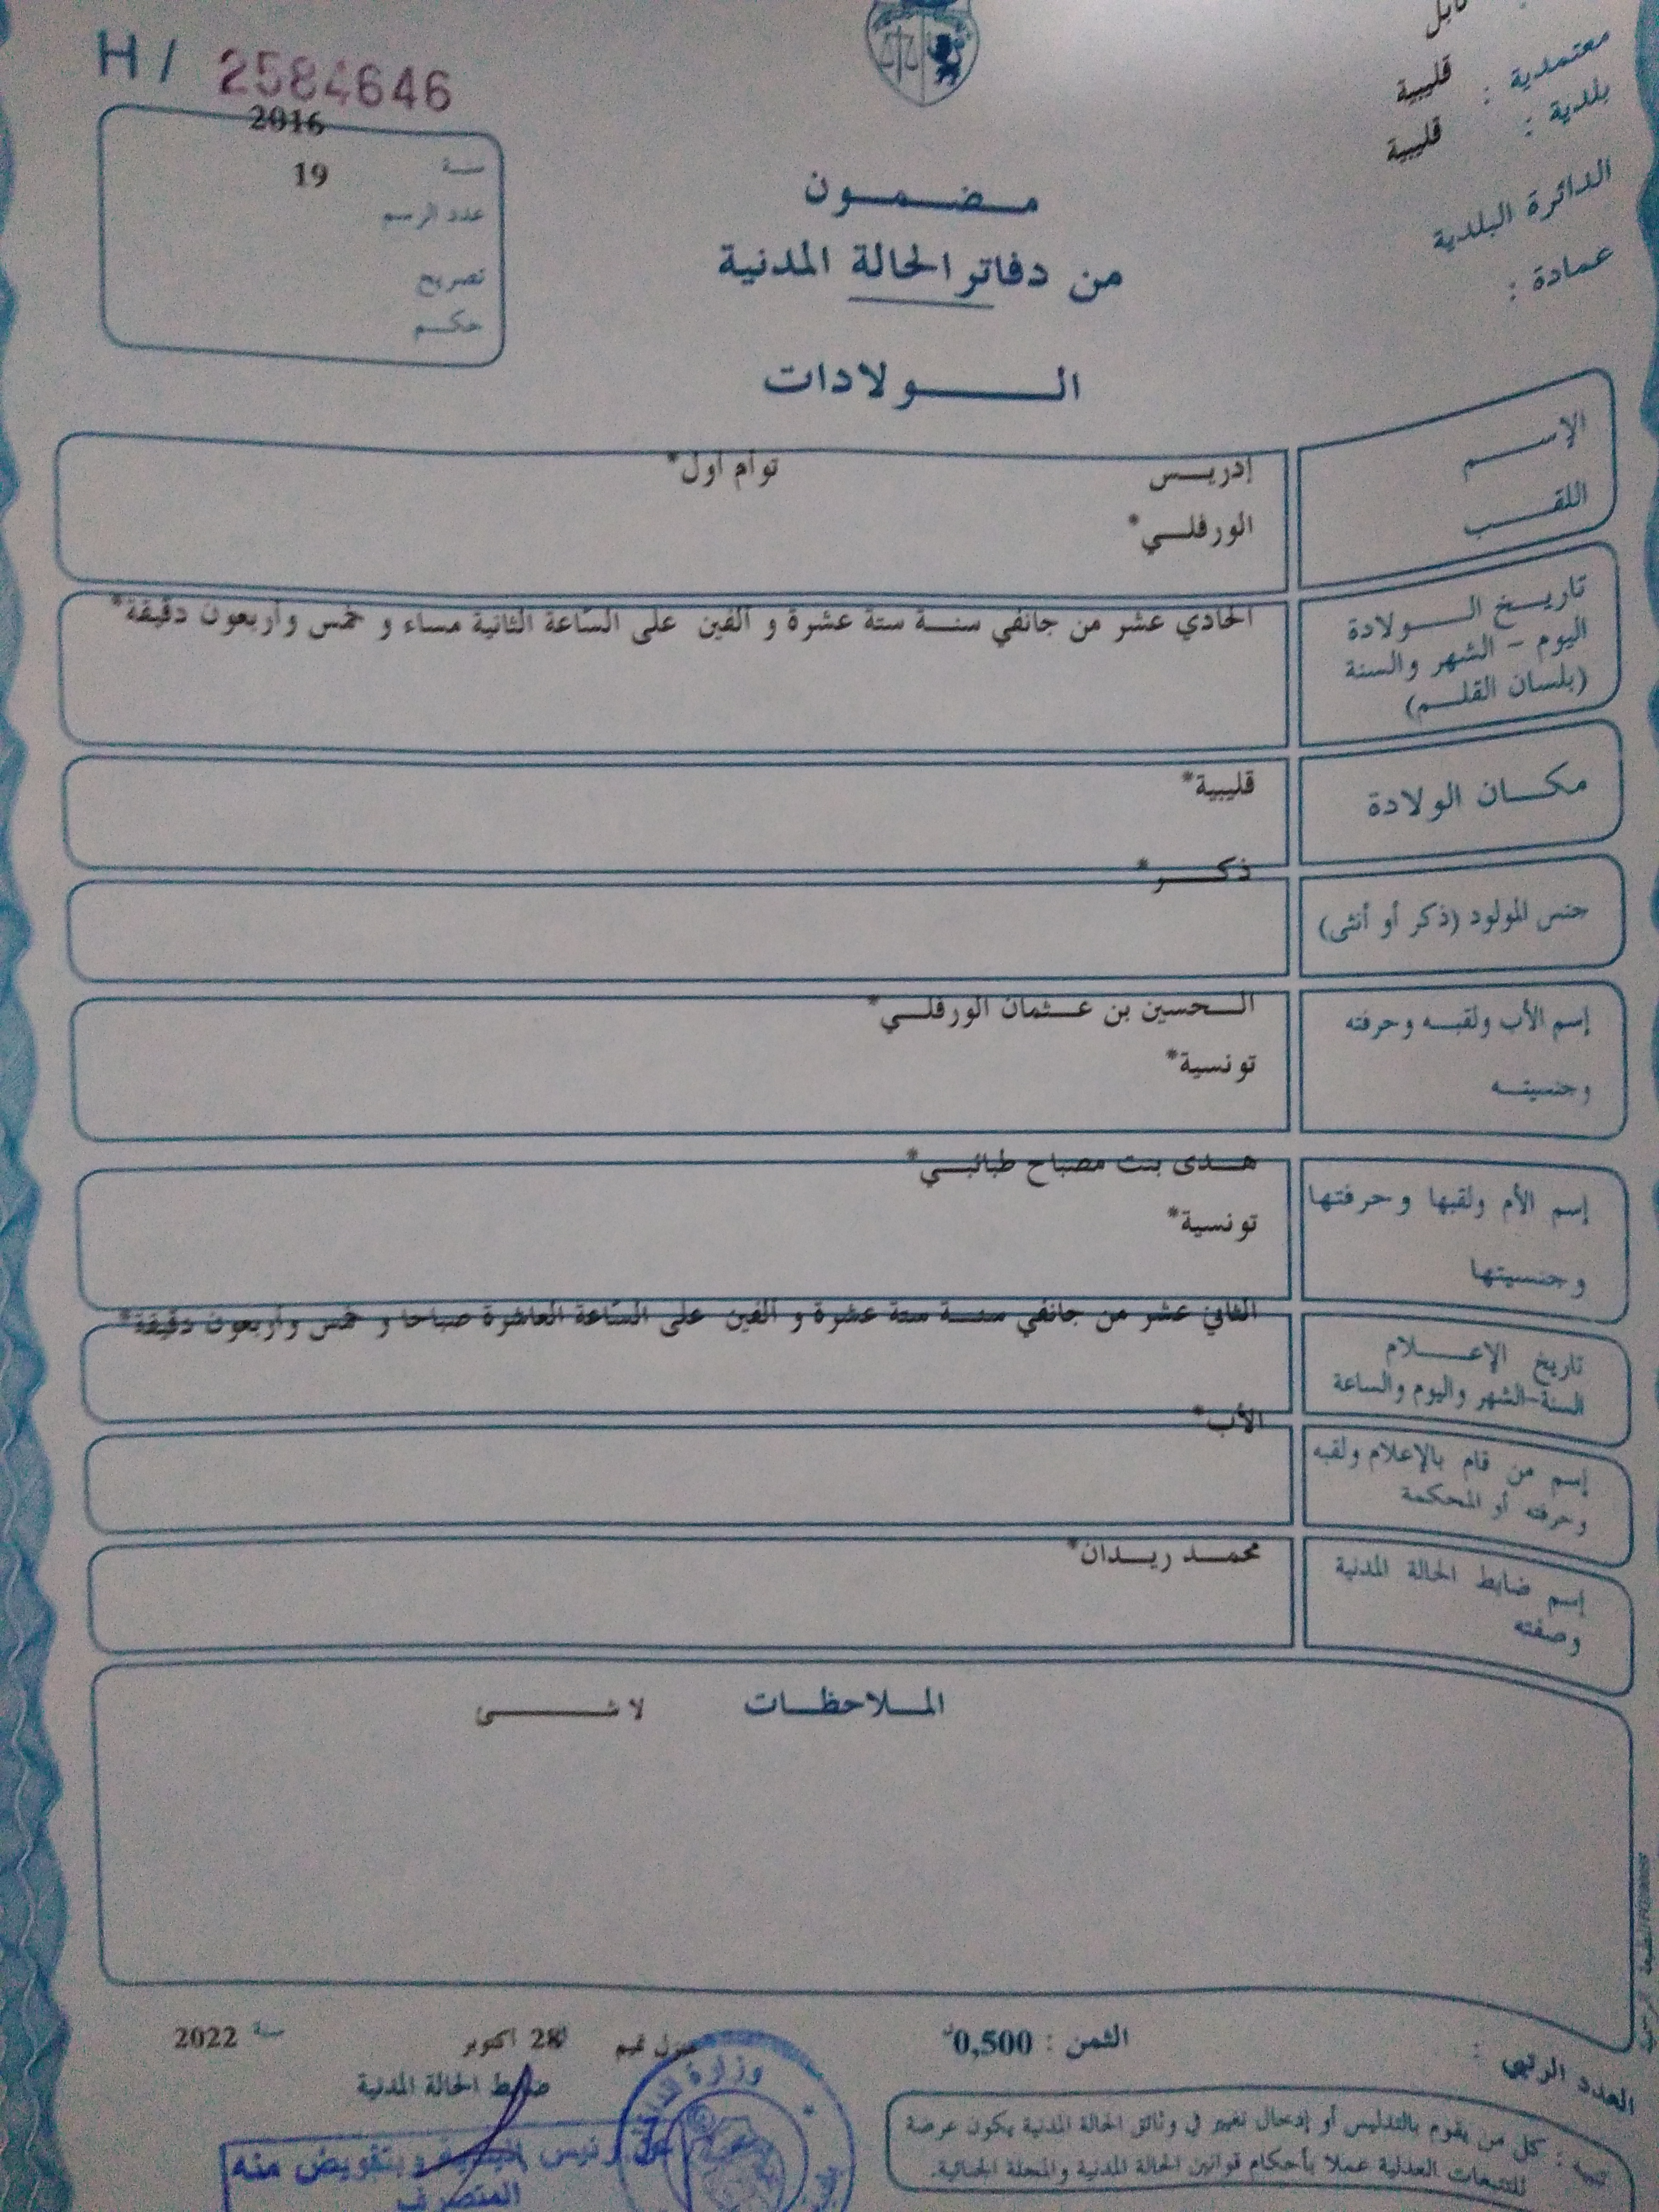 H / 2584646
نابل
معتمدية : قليبية
بلدية : قليبية
الدائرة البلدية
عمادة :
2016
سنة
19
عدد الرسم
تصريح
حكم
مضمون
من دفاتر الحالة المدنية
الولادات
الإسم إدريس توأم أول*
اللقب الورفلي*
تاريخ الولادة
اليوم - الشهر والسنة
(بلسان القلم)
الحادي عشر من جانفي سنة ستة عشرة و ألفين على السّاعة الثانية مساء و خمس وأربعون دقيقة*
مكان الولادة قليبية*
جنس المولود (ذكر أو أنثى) ذكر*
إسم الأب ولقبه وحرفته الحسين بن عثمان الورفلي*
وجنسيته تونسية*
إسم الأم ولقبها وحرفتها هدى بنت مصباح طبائبي*
وجنسيتها تونسية*
تاريخ الإعلام
السنة-الشهر واليوم والساعة
الثاني عشر من جانفي سنة ستة عشرة و ألفين على السّاعة العاشرة صباحا و خمس وأربعون دقيقة*
إسم من قام بالإعلام ولقبه
وحرفته أو المحكمة
الأب*
إسم ضابط الحالة المدنية
وصفته
محمد ريدان*
الملاحظات لا شى
العدد الرتبي :
الثمن : 0,500د
منزل تميم 28 اكتوبر سنة 2022
ضابط الحالة المدنية
تنبيه : كل من يقوم بالتدليس أو إدخال تغيير في وثائق الحالة المدنية يكون عرضة
للتتبعات العدلية عملا بأحكام قوانين الحالة المدنية والمجلة الجنائية.
عن رئيس البلدية وبتفويض منه
المتصرف
وزارة